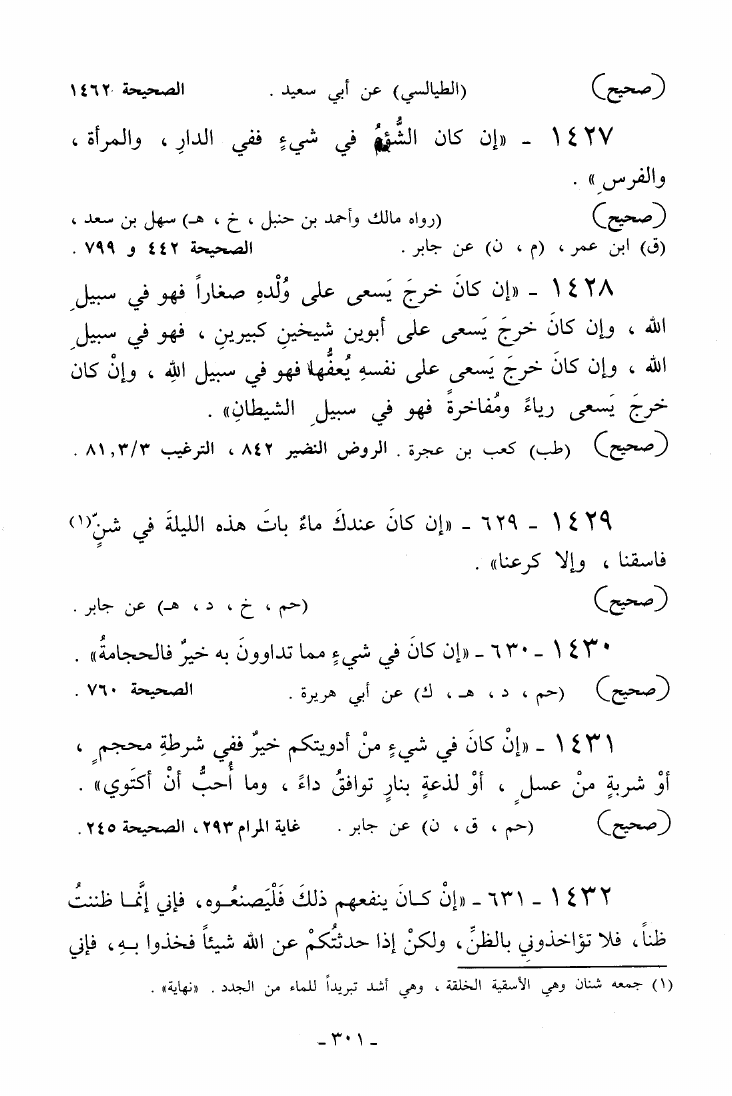 (صحيح) (الطيالسي) عن أبي سعيد . الصحيحة ١٤٦٢
١٤٢٧ - «إن كان الشُّؤمُ في شيءٍ ففي الدارِ ، والمرأة ،
والفرسِ» .
(صحيح) (رواه مالك وأحمد بن حنبل ، خ ، هـ) سهل بن سعد ،
(ق) ابن عمر ، (م ، ن) عن جابر . الصحيحة ٤٤٢ و ٧٩٩ .
١٤٢٨ - «إن كانَ خرجَ يَسعى على وُلْدهِ صغاراً فهو في سبيلِ
الله ، وإن كانَ خرجَ يَسعى على أبوين شيخينِ كبيرينِ ، فهو في سبيلِ
الله ، وإن كانَ خرجَ يَسعى على نفسهِ يُعفُّها فهو في سبيل اللهِ ، وإنْ كان
خرجَ يَسعى رياءً ومُفاخرةً فهو في سبيلِ الشيطانِ» .
(صحيح) (طب) كعب بن عجرة . الروض النضير ٨٤٢ ، الترغيب ٨١,٣/٣ .
١٤٢٩ - ٦٢٩ - «إن كانَ عندكَ ماءٌ باتَ هذه الليلةَ في شنٍّ(١)
فاسقنا ، وإلا كرعنا» .
(صحيح) (حم ، خ ، د ، هـ) عن جابر .
١٤٣٠ - ٦٣٠ - «إن كانَ في شيءٍ مما تداوونَ به خيرٌ فالحجامةُ» .
(صحيح) (حم ، د ، هـ ، ك) عن أبي هريرة . الصحيحة ٧٦٠ .
١٤٣١ - «إنْ كانَ في شيءٍ منْ أدويتكم خيرٌ ففي شرطةِ محجمٍ ،
أوْ شربةٍ منْ عسلٍ ، أوْ لذعةٍ بنارٍ توافقُ داءً ، وما أُحبُّ أنْ أكتَوي» .
(صحيح) (حم ، ق ، ن) عن جابر . غاية المرام ٢٩٣، الصحيحة ٢٤٥ .
١٤٣٢ - ٦٣١ - «إنْ كـانَ ينفعهم ذلكَ فَلْيَصنعُـوه، فإني إنَّمـا ظننتُ
ظناً، فلا تؤاخذوني بالظنِّ، ولكنْ إذا حدثتُكمْ عن الله شيئاً فخذوا بـهِ، فإني
(١) جمعه شنان وهي الأسقية الخلقة ، وهي أشد تبريداً للماء من الجدد . «نهاية» .
- ٣٠١ -